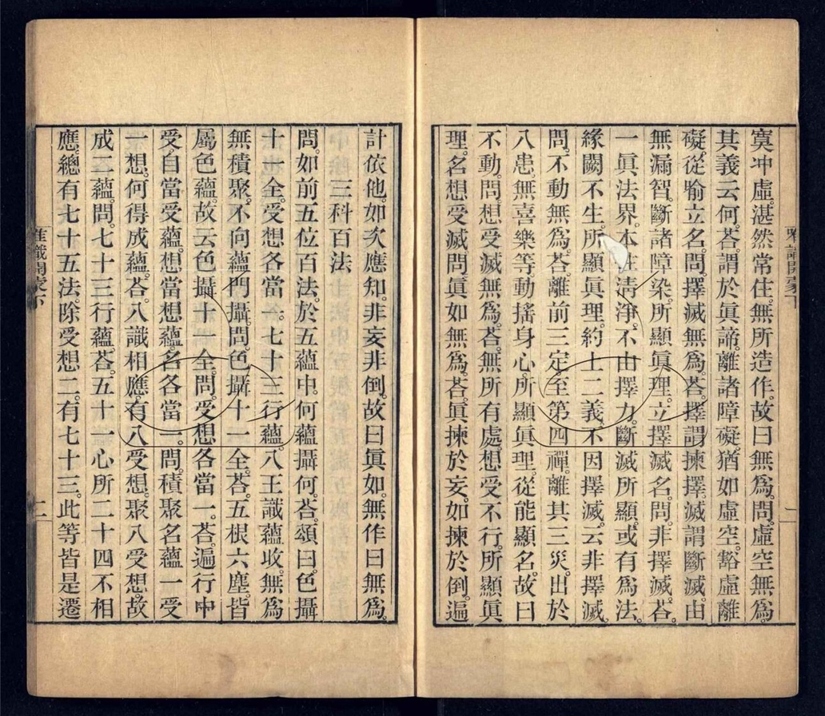 寞冲虛。湛然常住。無所造作。故曰無爲。問。虛空無爲
其義云何。荅。謂於眞諦。離諸障礙。猶如虛空。豁虛離
礙。從喻立名。問。擇滅無爲。荅。擇謂揀擇。滅謂斷滅。由
無漏智。斷諸障染。所顯眞理。立擇滅名。問。非擇滅。荅。
一眞法界。本性清淨。不由擇力。斷滅所顯。或有爲法。
緣闕不生。所顯眞理。約上二義。不因擇滅。云非擇滅。
問。不動無爲。荅。離前三定。至第四禪。離其三災。出於
八患。無喜樂等。動搖身心。所顯眞理。從能顯名。故曰
不動。問。想受滅無爲。荅。無所有處。想受不行。所顯眞
理。名想受滅。問。眞如無爲。荅。眞揀於妄。如揀於倒。遍
唯識開蒙下
一
計依他。如次應知。非妄非倒。故曰眞如。無作曰無爲。
三科百法
問。如前五位百法。於五蘊中。何蘊攝何。荅。頌曰。色攝
十一全。受想各當一。七十三行蘊。八王識蘊收。無爲
無積聚。不向蘊門攝。問。色攝十一全。荅。五根六塵。皆
屬色蘊。故云色攝十一全。問。受想各當一。荅。遍行中
受。自當受蘊。想當想蘊。名各當一。問。積聚名蘊。一受
一想。何得成蘊。荅。八識相應。有八受想。聚八受想。故
成二蘊。問。七十三行蘊。荅。五十一心所。二十四不相
應。總有七十五法。除受想二。有七十三。此等皆是遷
唯識開蒙下
二